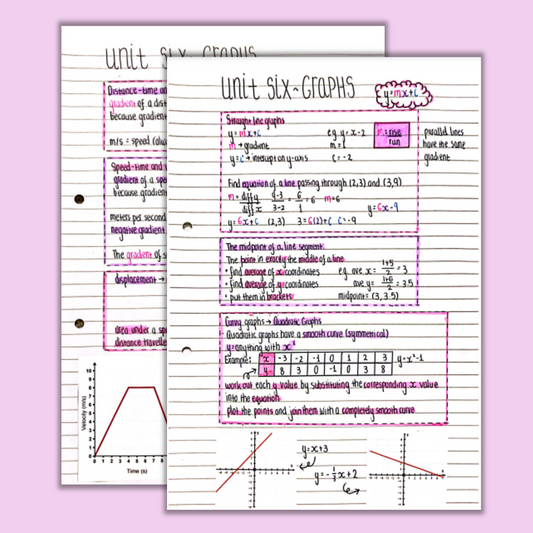 unit six - GRAPHS
Distance-time an
gradient of a dist
because gradient
m/s = speed (alw
Speed-time and v
gradient of a spe
because gradient
meters per second
negative gradient
The gradient of s
displacement →
area under a sp
distance travelle
Velocity (m/s)
10
9
8
7
6
5
4
3
2
1
0
0 1 2 3 4 5 6
Time (s)
unit six - GRAPHS
y=mx+c
Straight line graphs
y=mx+c
m → gradient
y=c → intercept on y-axis
e.g. y=x-2
m=1
c=-2
m = rise
run
parallel lines
have the same
gradient
Find equation of a line passing through (2,3) and (3,9)
m = diff y
diff x
9-3
3-2
= 6
1
= 6 m=6
y=6x-9
y=6x+c (2,3) 3=6(2)+c c=-9
The midpoint of a line segment:
The point in exactly the middle of a line
• find average of x coordinates
eg. ave x = 1+5
2
= 3
• find average of y coordinates
ave y = 1+6
2
= 3.5
• put them in brackets
midpoint = (3, 3.5)
Curvy graphs → Quadratic Graphs
Quadratic graphs have a smooth curve (symmetrical)
y=anything with x²
Example:
x -3 -2 -1 0 1 2 3
y 8 3 0 -1 0 3 8
y=x²-1
work out each y value by substituting the corresponding x value
into the equation
plot the points and join them with a completely smooth curve
y=x+3
y=-1/3x+2